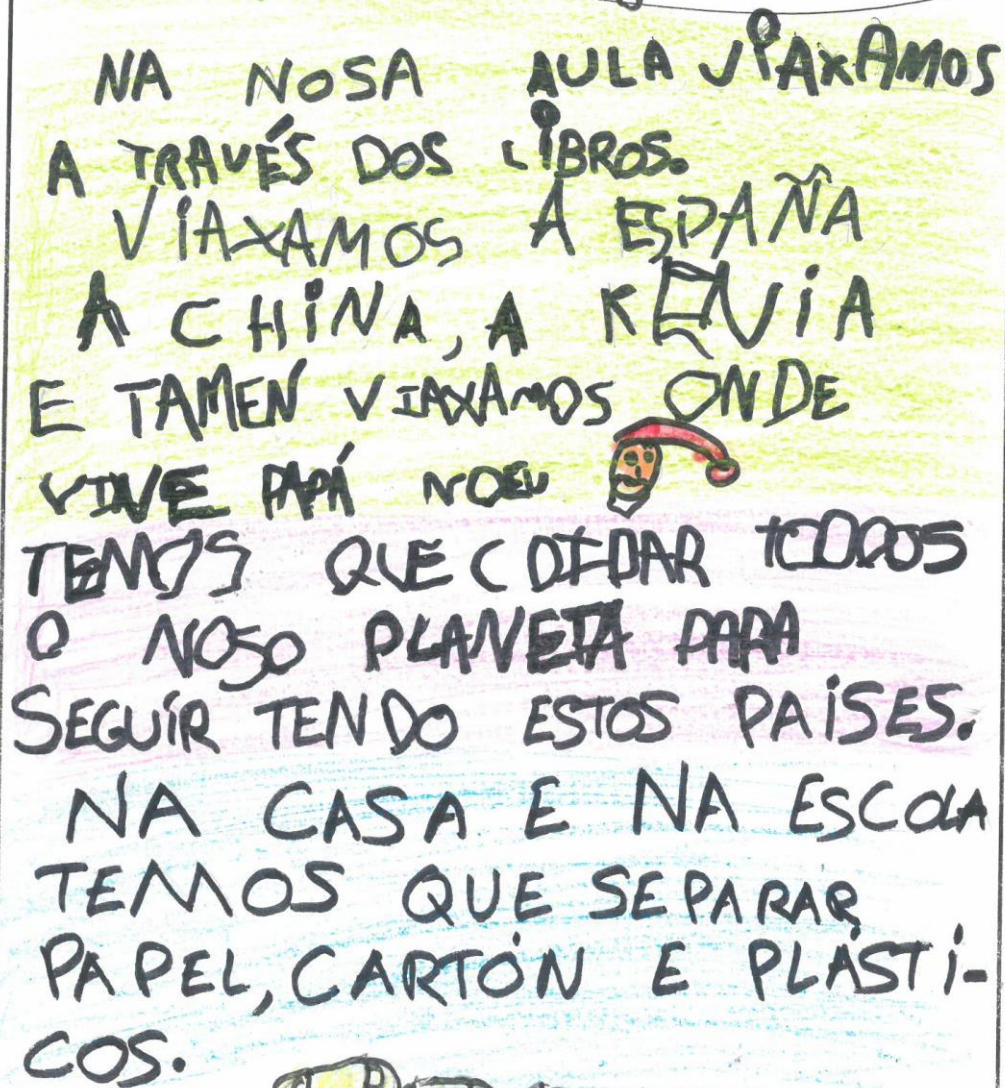 NA NOSA AULA VIAXAMOS
A TRAVÉS DOS LIBROS.
VIAXAMOS A ESPAÑA
A CHINA, A KENIA
E TAMEN VIAXAMOS ONDE
VIVE PAPÁ NOEL
TEMOS QUE COIDAR TODOS
O NOSO PLANETA PARA
SEGUIR TENDO ESTOS PAISES.
NA CASA E NA ESCOLA
TEMOS QUE SEPARAR
PAPEL, CARTÓN E PLÁSTI-
COS.